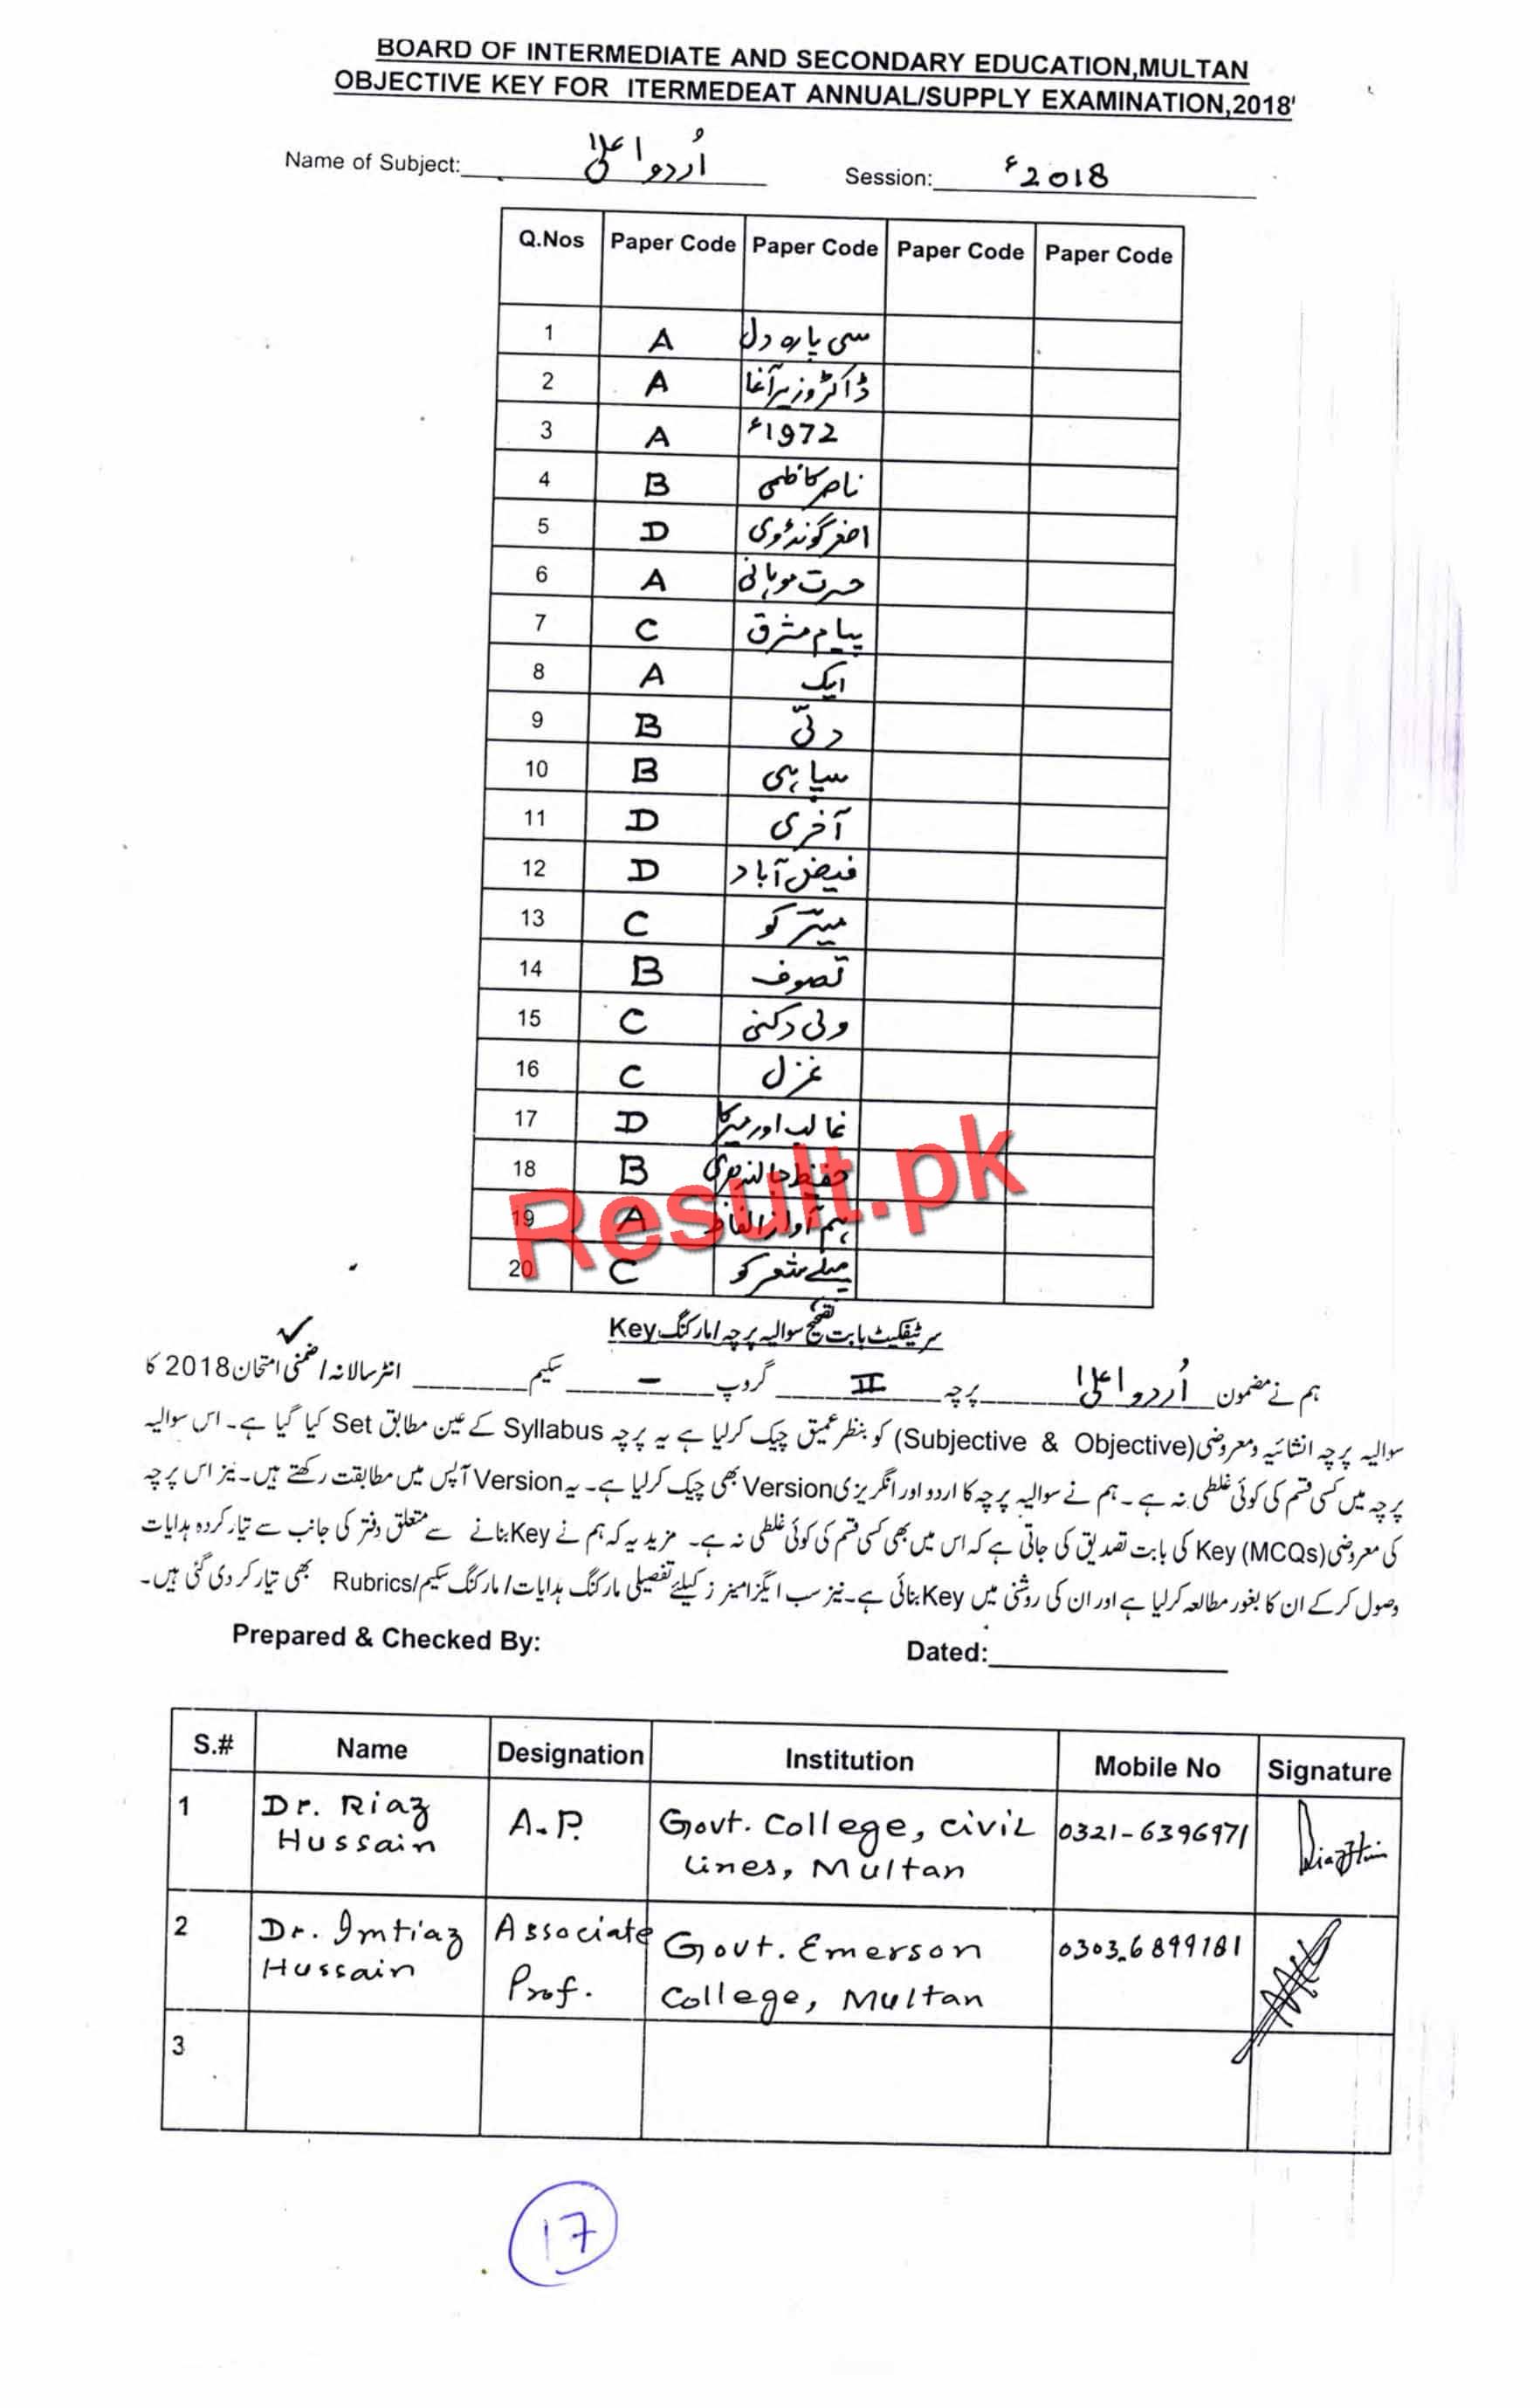 BOARD OF INTERMEDIATE AND SECONDARY EDUCATION,MULTAN
OBJECTIVE KEY FOR ITERMEDEAT ANNUAL/SUPPLY EXAMINATION,2018'
Name of Subject: اُردو اعلیٰ Session: 2018ء
Q.Nos Paper Code Paper Code Paper Code Paper Code
1 A سی پارہ دل
2 A ڈاکٹر وزیر آغا
3 A 1972ء
4 B ناصر کاظمی
5 D اصغر گونڈوی
6 A حسرت موہانی
7 C پیام مشرق
8 A ایک
9 B دلّی
10 B سپاہی
11 D آخری
12 D فیض آباد
13 C میرؔ کو
14 B تصوف
15 C ولی دکنی
16 C غزل
17 D غالب اور میر کا
18 B حفیظ جالندھری
19 A ہم آواز الفاظ
20 C پہلے شعر کو
Result.pk
سرٹیفکیٹ بابت تصحیح سوالیہ پرچہ / مارکنگ Key
ہم نے مضمون اُردو اعلیٰ پرچہ II گروپ – سکیم انٹر سالانہ / ضمنی امتحان 2018 کا ✓
سوالیہ پرچہ انشائیہ ومعروضی (Subjective & Objective) کو بنظر عمیق چیک کرلیا ہے یہ پرچہ Syllabus کے عین مطابق Set کیا گیا ہے۔ اس سوالیہ
پرچہ میں کسی قسم کی کوئی غلطی نہ ہے۔ ہم نے سوالیہ پرچہ کا اردو اور انگریزی Version بھی چیک کرلیا ہے۔ یہ Version آپس میں مطابقت رکھتے ہیں۔ نیز اس پرچہ
کی معروضی (MCQs) Key کی بابت تصدیق کی جاتی ہے کہ اس میں بھی کسی قسم کی کوئی غلطی نہ ہے۔ مزید یہ کہ ہم نے Key بنانے سے متعلق دفتر کی جانب سے تیار کردہ ہدایات
وصول کر کے ان کا بغور مطالعہ کرلیا ہے اور ان کی روشنی میں Key بنائی ہے۔ نیز سب ایگزامینرز کیلئے تفصیلی مارکنگ ہدایات / مارکنگ سکیم / Rubrics بھی تیار کر دی گئی ہیں۔
Prepared & Checked By: Dated:
S.# Name Designation Institution Mobile No Signature
1 Dr. Riaz Hussain A.P. Govt. College, Civil Lines, Multan 0321-6396971
2 Dr. Imtiaz Hussain Associate Prof. Govt. Emerson College, Multan 0303-6899181
3
17